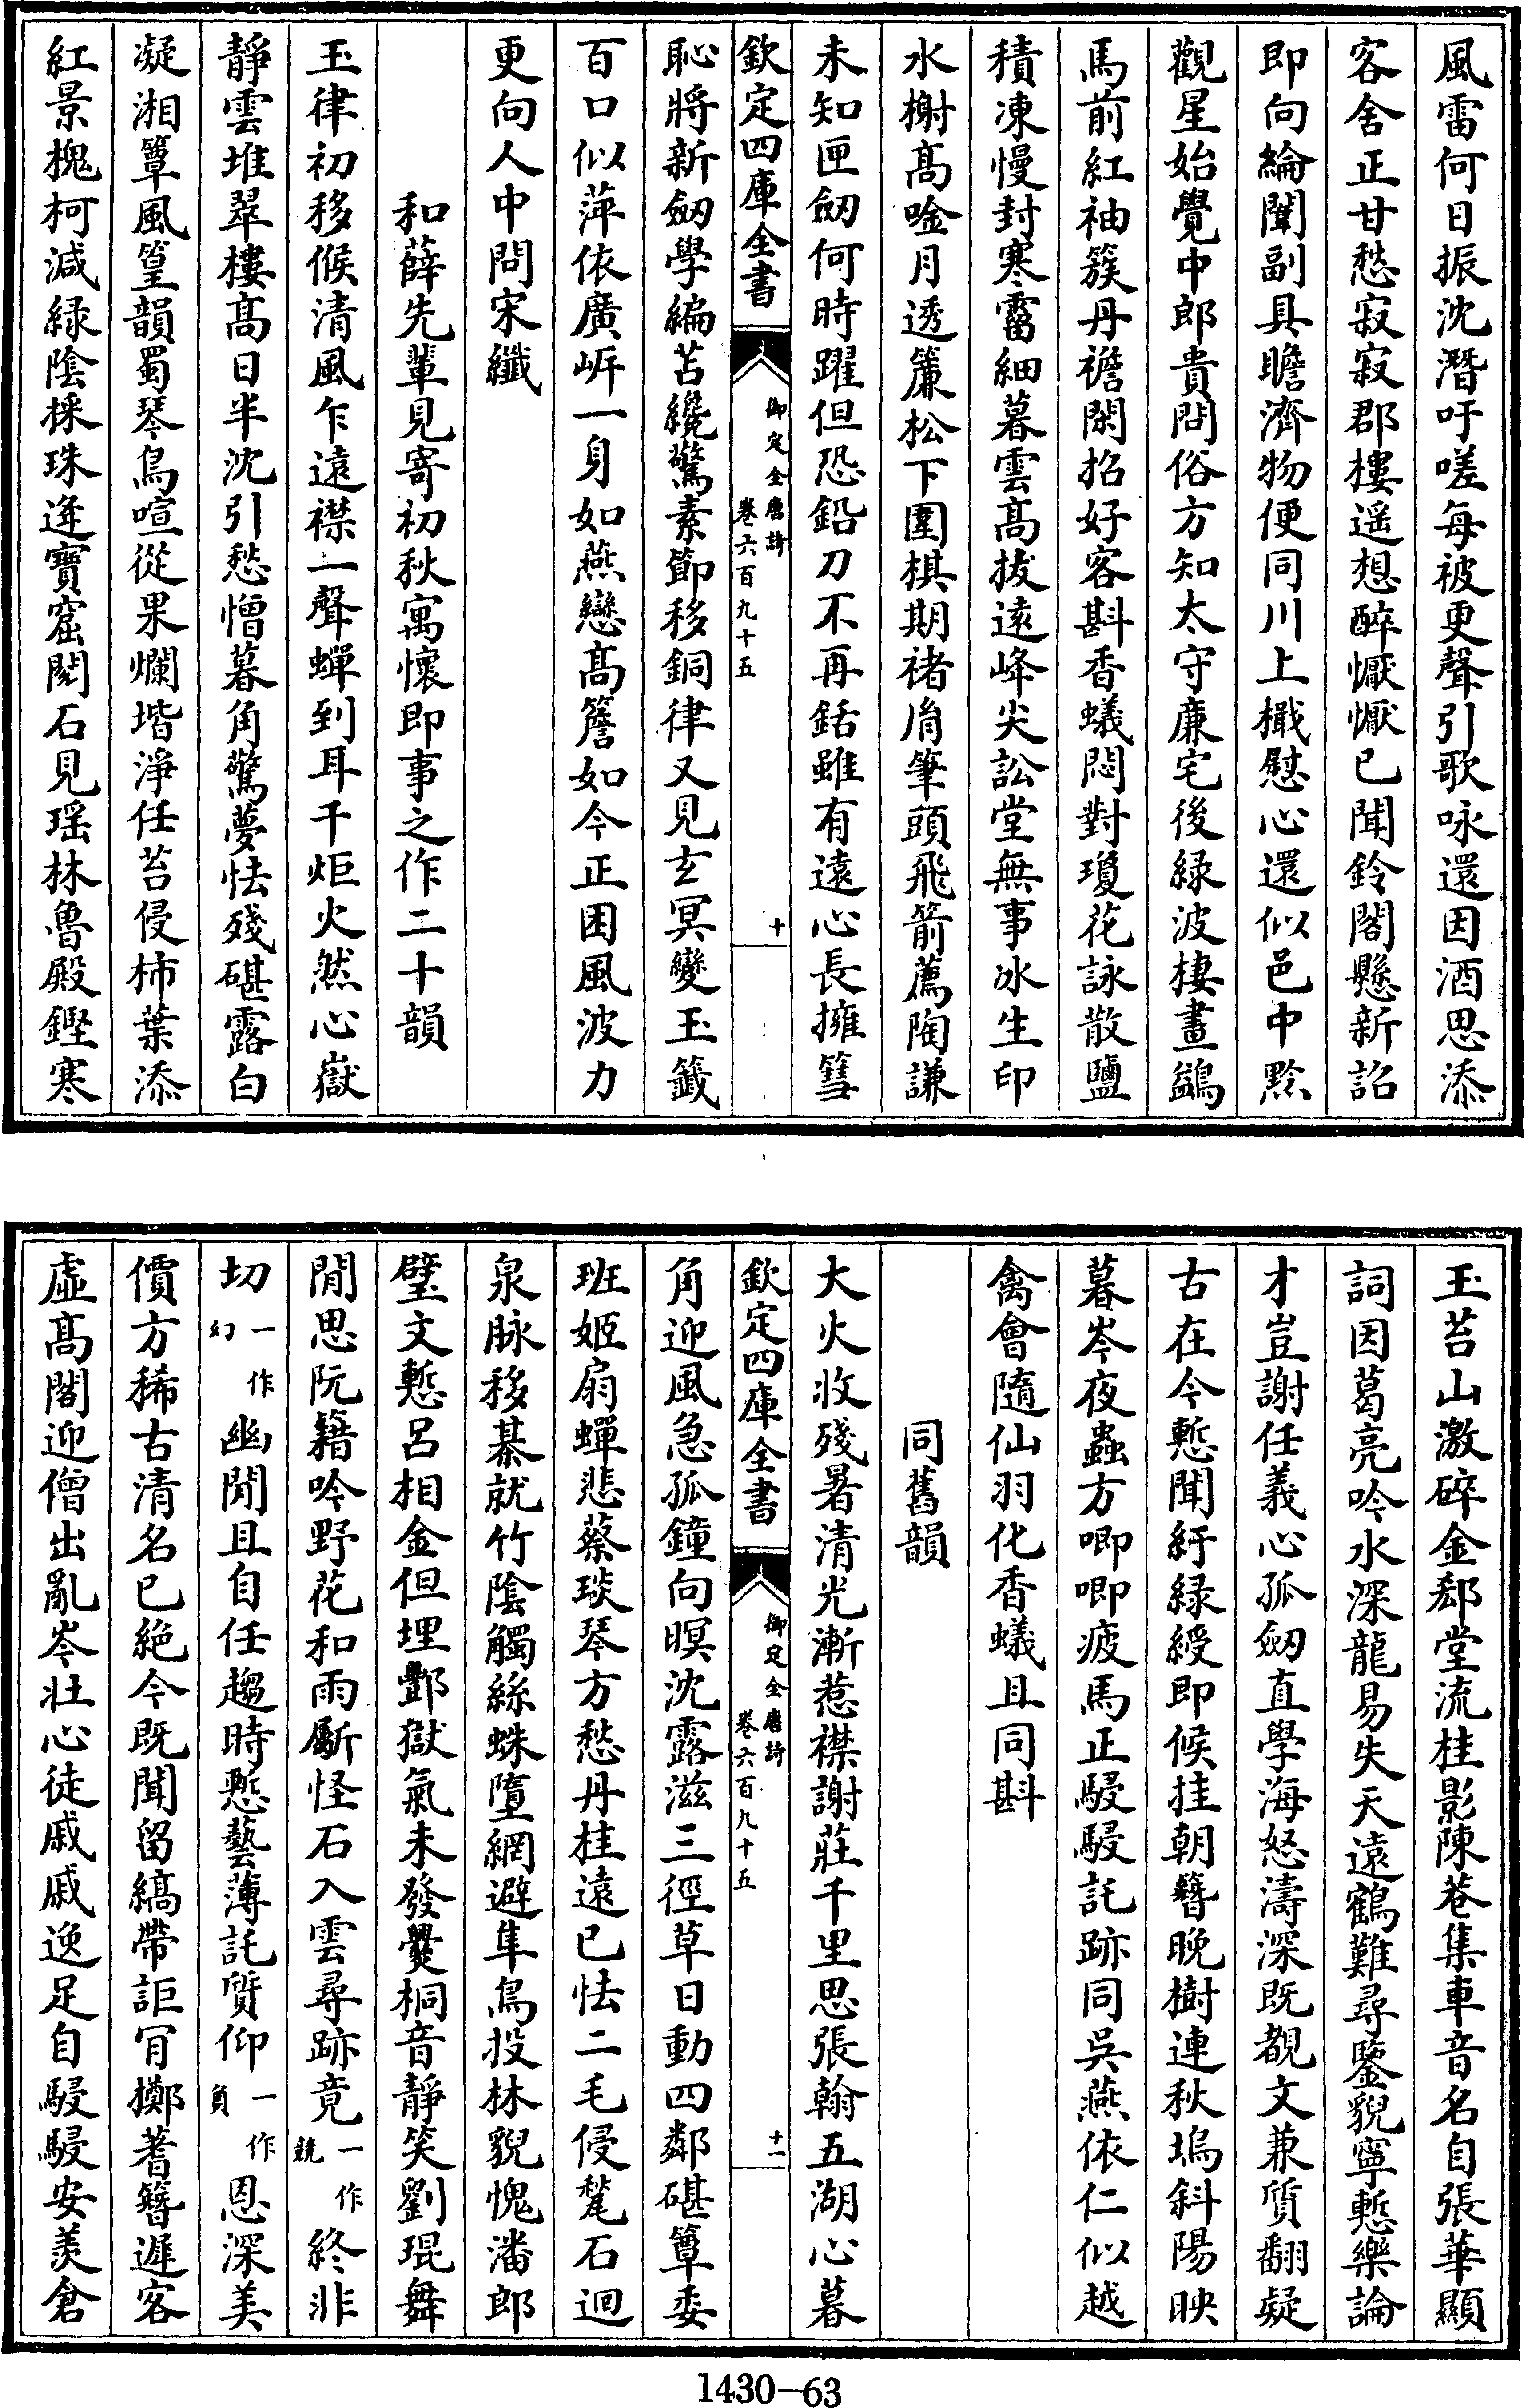 風雷何日振沈潛吁嗟每被更聲引歌咏還因酒思添
客舍正甘愁寂寂郡樓遥想醉懨懨已聞鈴閣懸新詔
即向綸闈副具瞻濟物便同川上檝慰心還似邑中黔
觀星始覺中郎貴問俗方知太守廉宅後緑波棲畫鷁
馬前紅袖簇丹襜閑招好客斟香蟻悶對瓊花詠散鹽
積凍慢封寒霤細暮雲髙拔遠峰尖訟堂無事冰生印
水榭髙唫月透簾松下圍棋期褚胤筆頭飛箭薦陶謙
未知匣劒何時躍但恐鉛刀不再銛雖有遠心長擁篲
欽定四庫全書
御定全唐詩
卷六百九十五
十
恥將新劒學編苫纔驚素節移銅律又見玄冥變玉籤
百口似萍依廣㟁一身如燕戀髙簷如今正困風波力
更向人中問宋纖
和薛先輩見寄初秋寓懷即事之作二十韻
玉律初移候清風乍遠襟一聲蟬到耳千炬火然心嶽
靜雲堆翠樓髙日半沈引愁憎暮角驚夢怯殘碪露白
凝湘簟風篁韻蜀琴鳥喧從果爛堦淨任苔侵柿葉添
紅景槐柯減緑陰採珠逢寶窟閱石見瑶林魯殿鏗寒
玉苔山激碎金郄堂流桂影陳巷集車音名自張華顯
詞因葛亮吟水深龍易失天遠鶴難尋鑒貌寧慙樂論
才豈謝任義心孤劒直學海怒濤深既覩文兼質翻疑
古在今慙聞紆緑綬即候挂朝簪晚樹連秋塢斜陽映
暮岑夜蟲方唧唧疲馬正駸駸託跡同吳燕依仁似越
禽會隨仙羽化香蟻且同斟
同舊韻
大火收殘暑清光漸惹襟謝莊千里思張翰五湖心暮
欽定四庫全書
御定全唐詩
卷六百九十五
十一
角迎風急孤鐘向暝沈露滋三徑草日動四鄰碪簟委
班姬扇蟬悲蔡琰琴方愁丹桂逺已怯二毛侵甃石迴
泉脉移棊就竹陰觸絲蛛墮網避隼鳥投林貌愧潘郎
璧文慙吕相金但埋酆獄氣未發爨桐音靜笑劉琨舞
閒思阮籍吟野花和雨斸怪石入雲尋跡竟一作競終非
切一作幻幽閒且自任趨時慙藝薄託質仰一作負恩深美
價方稀古清名已絶今既聞留縞帶詎肎擲蓍簪遲客
虛髙閣迎僧出亂岑壯心徒戚戚逸足自駸駸安羨倉
1430-63